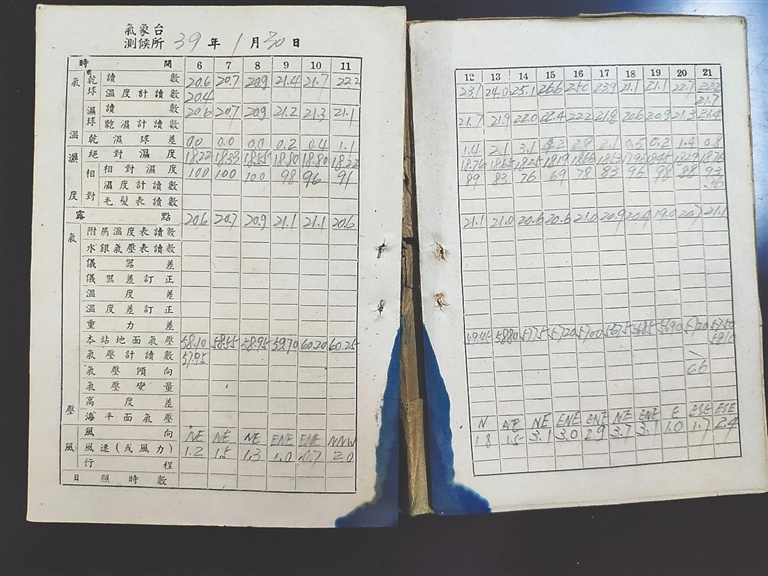 氣象台
測候所 39 年 1 月 30 日
時間 6 7 8 9 10 11 12 13 14 15 16 17 18 19 20 21
氣溫 乾球 讀數 20.6 20.7 20.9 21.4 21.7 22.2 23.1 24.0 25.1 26.6 25.0 23.9 21.1 21.1 22.7 22.2
溫度計讀數 20.4 21.7
濕球 讀數 20.6 20.7 20.9 21.2 21.3 21.1 21.7 21.9 22.0 22.4 22.2 21.8 20.6 20.9 21.3 21.4
乾濕計讀數
濕度 乾濕球差 0.0 0.0 0.0 0.2 0.4 1.1 1.4 2.1 3.1 2.8 2.1 0.5 0.2 1.4 0.8
絕對濕度 18.22 18.33 18.55 18.80 18.80 18.22 18.76 18.65 18.25 18.19 18.53 18.45 18.76
相對 相對濕度 100 100 100 98 96 91 89 83 76 69 78 83 96 98 88 93
濕度計讀數
毛髮表讀數
露點 20.6 20.7 20.9 21.1 21.1 20.6 21.1 21.0 20.6 20.6 21.0 20.9 20.4 21.1
氣壓 附屬溫度表讀數
水銀氣壓表讀數
儀器差
儀器差訂正
溫度差
溫度差訂正
重力差
本站地面氣壓 58.10 58.55 58.95 59.70 60.20 60.25 58.80 57.75 57.20 57.00 56.75 56.85 56.90 57.20 57.50
氣壓計讀數 57.95
氣壓傾向
氣壓變量
高度差
海平面氣壓
風 風向 NE NE NE ENE ENE NNW N NE ENE ENE NE ENE E ESE ESE
風速(或風力) 1.2 1.5 1.3 1.0 0.7 2.0 1.8 1.5 3.1 3.0 2.9 3.7 3.1 1.0 1.7 2.4
行程
日照時數